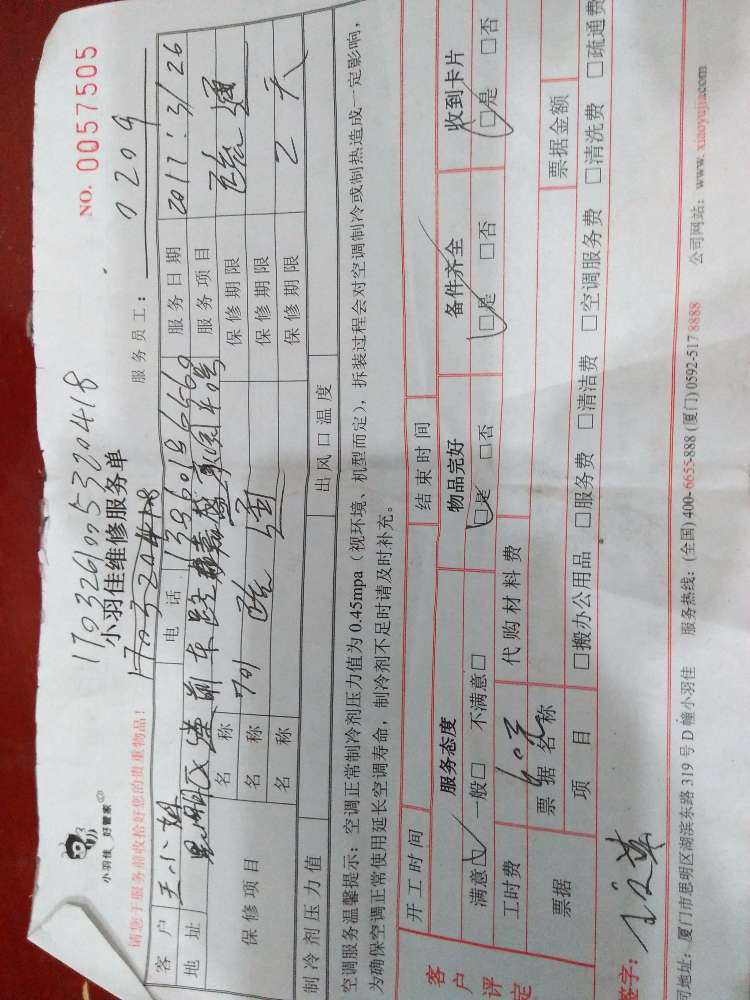 NO. 0057505
17032610053 20418
小羽佳 好管家
小羽佳维修服务单
请您于服务前收拾好您的贵重物品!
服务员工: 0209
客户 王小姐 电话 服务日期 2017:3/26
地址 思明区 服务项目 疏通
保修项目 名称 保修期限 2天
名称 疏通 保修期限
名称 保修期限
制冷剂压力值 出风口温度
空调服务温馨提示:空调正常制冷剂压力值为0.45mpa(视环境、机型而定),拆装过程会对空调制冷或制热造成一定影响,
为确保空调正常使用延长空调寿命,制冷剂不足时请及时补充。
开工时间 结束时间
客户评定 服务态度 物品完好 备件齐全 收到卡片
满意□ 一般□ 不满意□ □是 □否 □是 □否 □是 □否
工时费 60元 代购材料费
票据 票据名称 票据金额
项目 □搬办公用品 □服务费 □清洁费 □空调服务费 □清洗费 □疏通费
签字:
司地址:厦门市思明区湖滨东路319号D幢小羽佳 服务热线:(全国)400-6655-888 (厦门)0592-517 8888 公司网站:www.xiaoyujia.com